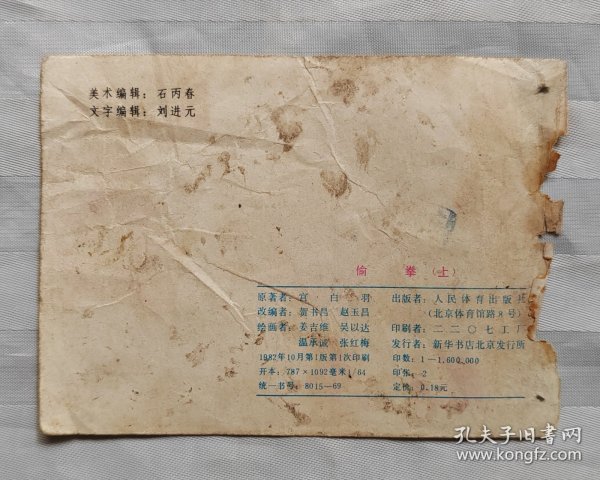 美术编辑：石丙春
文字编辑：刘进元
偷 拳（上）
原著者：宫白羽
改编者：贺书昌 赵玉昌
绘画者：姜吉维 吴以达
温承诚 张红梅
1982年10月第1版第1次印刷
开本：787×1092毫米1/64
统一书号：8015—69
出版者：人民体育出版社
（北京体育馆路8号）
印刷者：二二〇七工厂
发行者：新华书店北京发行所
印数：1—1,600,000
印张：2
定价：0.18元
孔夫子旧书网
www.kongfz.com